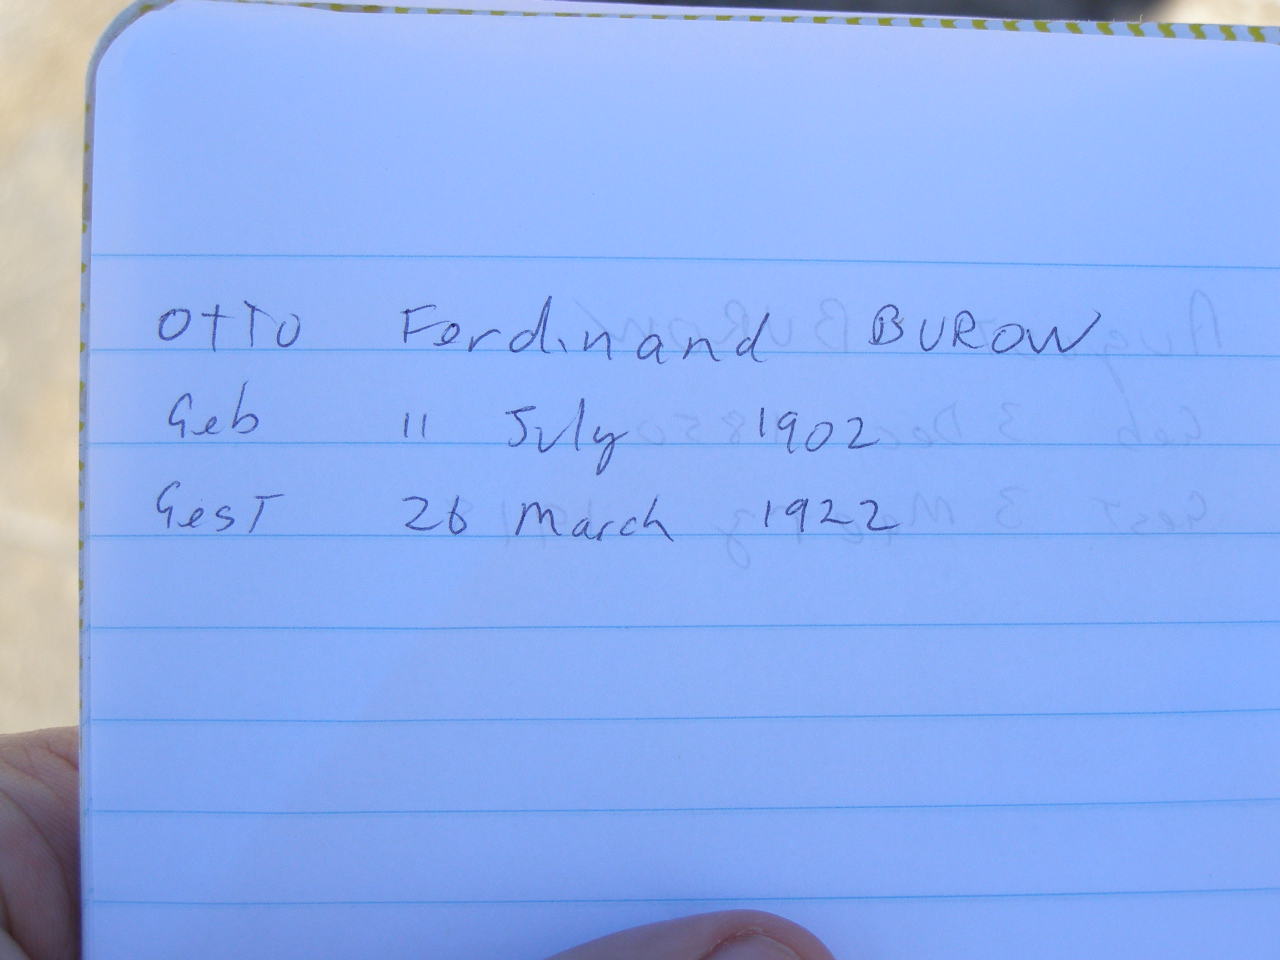 OTTO Ferdinand BUROW
Geb 11 July 1902
Gest 26 March 1922